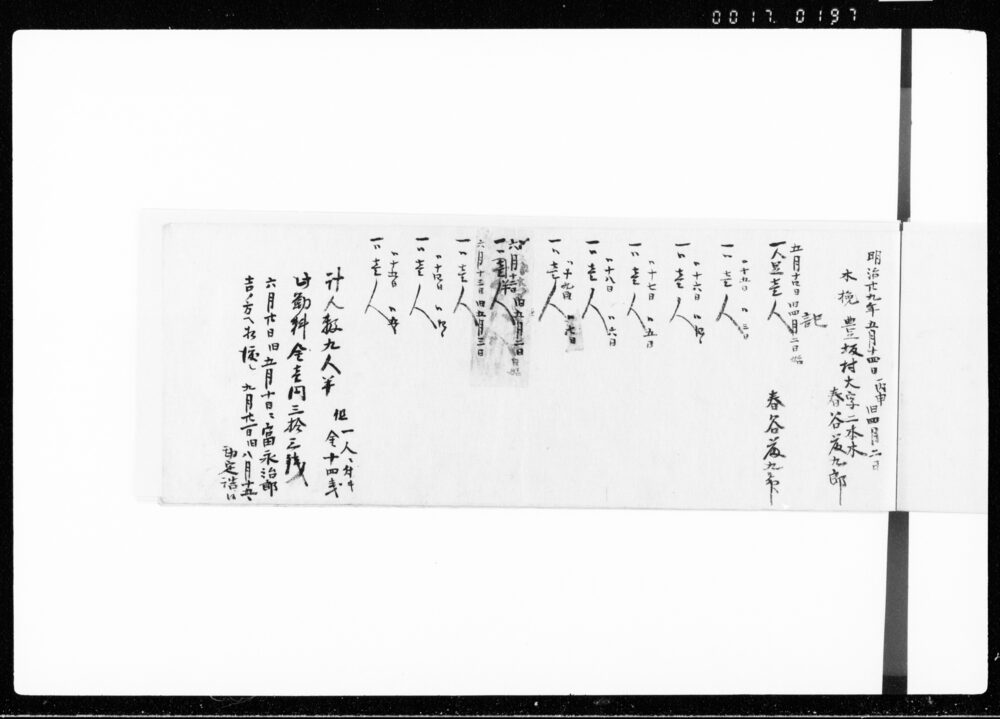 0017.0197
明治廿九年五月十四日 丙申 旧四月二日
木挽豊坂村大字二本木
春谷益九郎
記
五月十四日旧四月二日始
一人足壱人 春谷益九郎
〃十五日〃三日
一〃壱人
〃十六日〃四日
一〃壱人
〃十七日〃五日
一〃壱人
〃十八日〃六日
一〃壱人
〃十九日〃七日
一〃壱人
六月十二日旧五月二日
一〃壱人
六月十三日旧五月三日
一〃壱人
〃十四日〃四日
一〃壱人
〃十五日〃五日
一〃壱人
計人数九人半 但一人ニ付キ金十四戋
此勤料金壱円三拾三銭
六月廿日旧五月十日ニ富永治郎
吉方へ相渡し九月廿二日旧八月十五日
勘定済